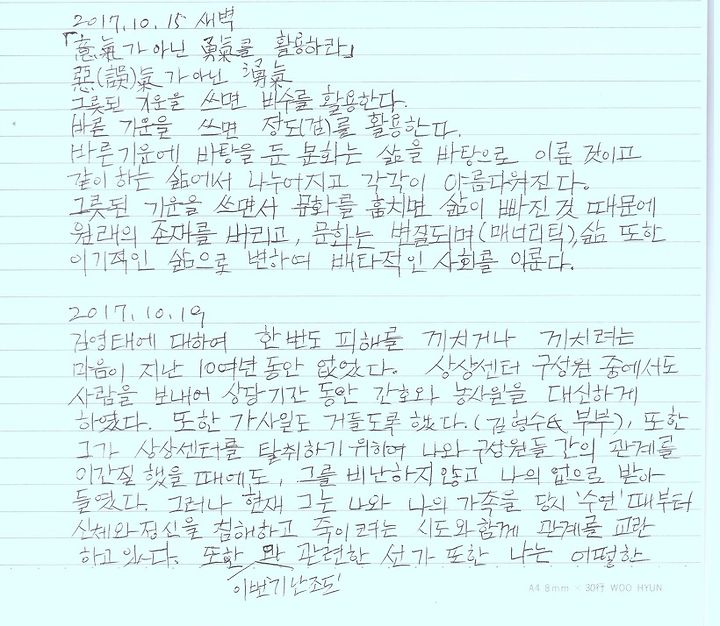 2017.10.15 새벽
「意氣가 아닌 勇氣를 활용하라」
惡(誤)氣가 아닌 勇氣
그릇된 기운을 쓰면 비수를 활용한다.
바른 기운을 쓰면 정도(검)를 활용한다.
바른 기운에 바탕을 둔 문화는 삶을 바탕으로 이룬 것이고
같이 하는 삶에서 나누어지고 각각이 아름다워진다.
그릇된 기운을 쓰면서 문화를 훔치면 삶이 빠진 것 때문에
원래의 존재를 버리고, 문화는 변질되며(매너리틱), 삶 또한
이기적인 삶으로 변하여 배타적인 사회를 이룬다.
2017.10.19
김영태에 대하여 한번도 피해를 끼치거나 끼치려는
마음이 지난 10여년 동안 없었다. 상상센터 구성원 중에서도
사람을 보내어 상당기간 동안 간호와 농사일을 대신하게
하였다. 또한 가사일도 거들도록 했다.(김형수氏 부부), 또한
그가 상상센터를 탈취하기 위하여 나와 구성원들 간의 관계를
이간질 했을 때에도, 그를 비난하지 않고 나의 업으로 받아
들였다. 그러나 현재 그는 나와 나의 가족을 당시 '수연'때부터
신체와 정신을 침해하고 죽이려는 시도와 함께 관계를 교란
하고 있다. 또한 관련한 선가 또한 나는 어떨한
이번기난조도
A4 8mm × 30行 WOO HYUN